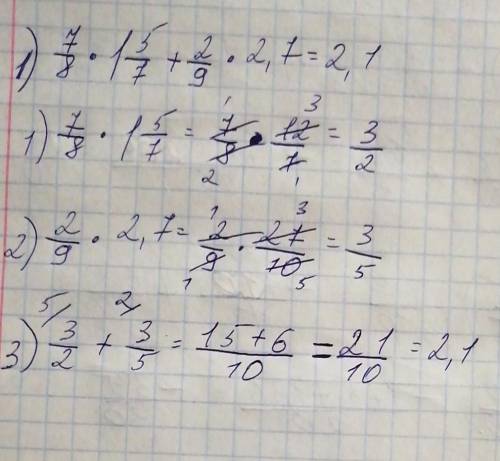 1) 7/8 · 1 5/7 + 2/9 · 2,7 = 2,1
1) 7/8 · 1 5/7 = 7/8 · 12/7 = 3/2
2) 2/9 · 2,7 = 2/9 · 27/10 = 3/5
3) 3/2 + 3/5 = 15+6/10 = 21/10 = 2,1